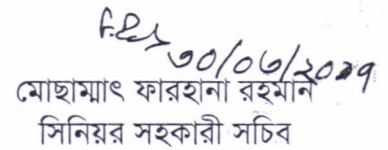 ৩০/০৬/২০১৭
মোছাম্মাৎ ফারহানা রহমান
সিনিয়র সহকারী সচিব